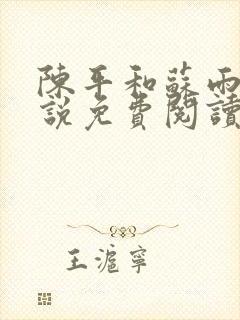 陳平和蘇雨
說免費閱讀
王滬寧